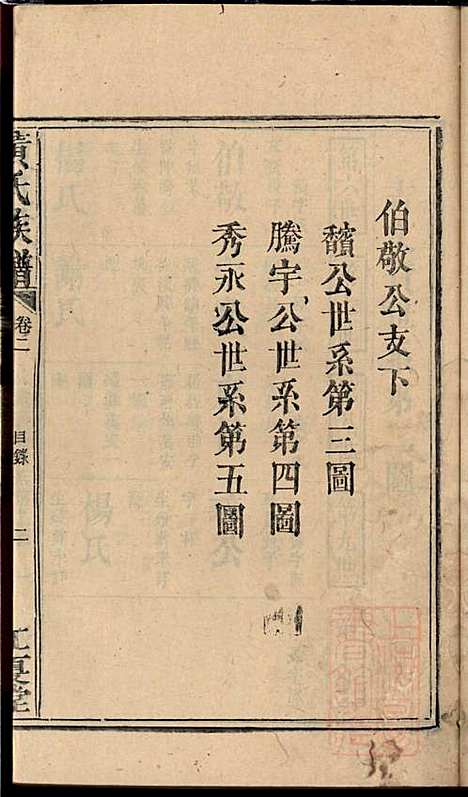 伯敬公支下
馪公世系第三圖
騰宇公世系第四圖
秀永公世系第五圖
黄氏族譜
卷二
目錄
二
江夏堂